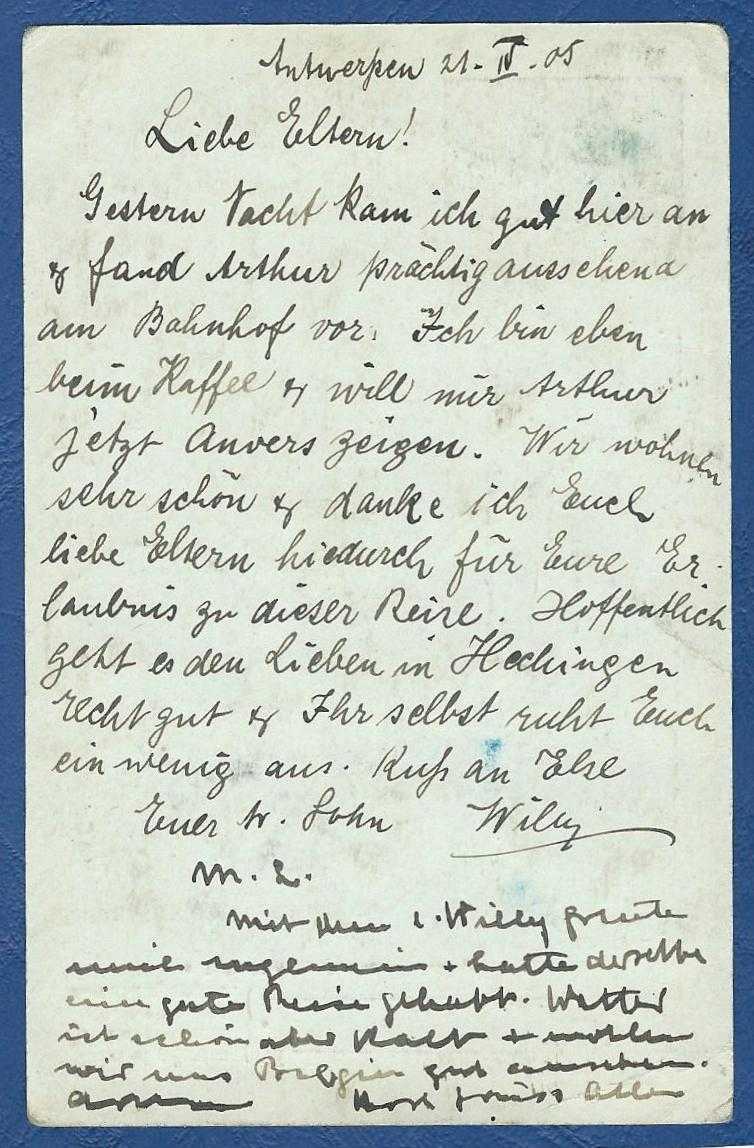 Antwerpen 21. IV. 05
Liebe Eltern!
Gestern Nacht kam ich gut hier an
& fand Arthur prächtig aussehend
am Bahnhof vor. Ich bin eben
beim Kaffee & will mir Arthur
jetzt Anvers zeigen. Wir wohnen
sehr schön & danke ich Euch
liebe Eltern hiedurch für Eure Er-
laubnis zu dieser Reise. Hoffentlich
geht es den Lieben in Hechingen
recht gut & Ihr selbst ruht Euch
ein wenig aus. Kuß an Else
Euer tr. Sohn Willy
M. L.
Mit dem l. Willy freute
mich ungemein + hatte derselbe
eine gute Reise gehabt. Wetter
ist schön aber kalt + wollen
wir uns Belgien gut ansehen.
Kuss